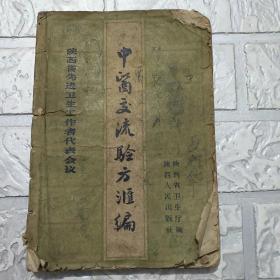 陕西省先进卫生工作者代表会议
中医交流验方汇编
陕西省卫生厅编
陕西人民出版社